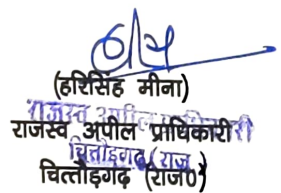 (हरिसिंह मीना)
राजस्व अपील प्राधिकारी
चित्तौड़गढ़ (राज0)